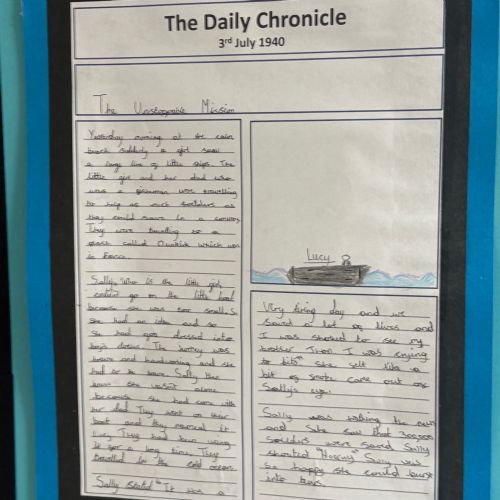 The Daily Chronicle
3rd July 1940
The Unstoppable Mission
Yesterday morning at the calm
beach suddenly a girl saw
a large line of little ships. The
little girl and her dad who
was a were travelling
to help as much soldiers as
they could save in a convoy
They were traveling to a
place called which was
in
Sally Who is the little girl
couldn't go on the little boat
because she was too small. So
she had an idea and so
she had got dressed into
boys clothes. The journey was
brave and and she
had to be brave. Sally then
knew she wasn't alone
because she had came with
her dad They went on their
boat and they named it
Lucy They had been using
it for a long time. They
travelled in the cold ocean.
Sally stated "It was a
Lucy
Very tiring day and we
saved a lot of lives and
I was shocked to see my
brother Then I was crying
to bits" She felt like a
bit of came out of
Sally's eye.
Sally was watching the news
and She saw that
soldiers were saved Sally
shouted "Hooray" Sally was
so happy she could burst
into tears.